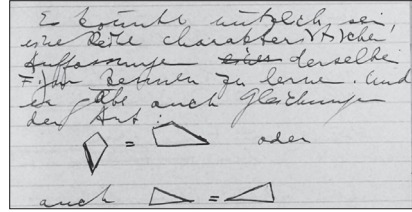 Es könnte nützlich sein,
eine Reihe charakteristischer
Auffassungen derselben
zu lernen. Und
er auch Gleichungen
der Art:
= oder
auch =